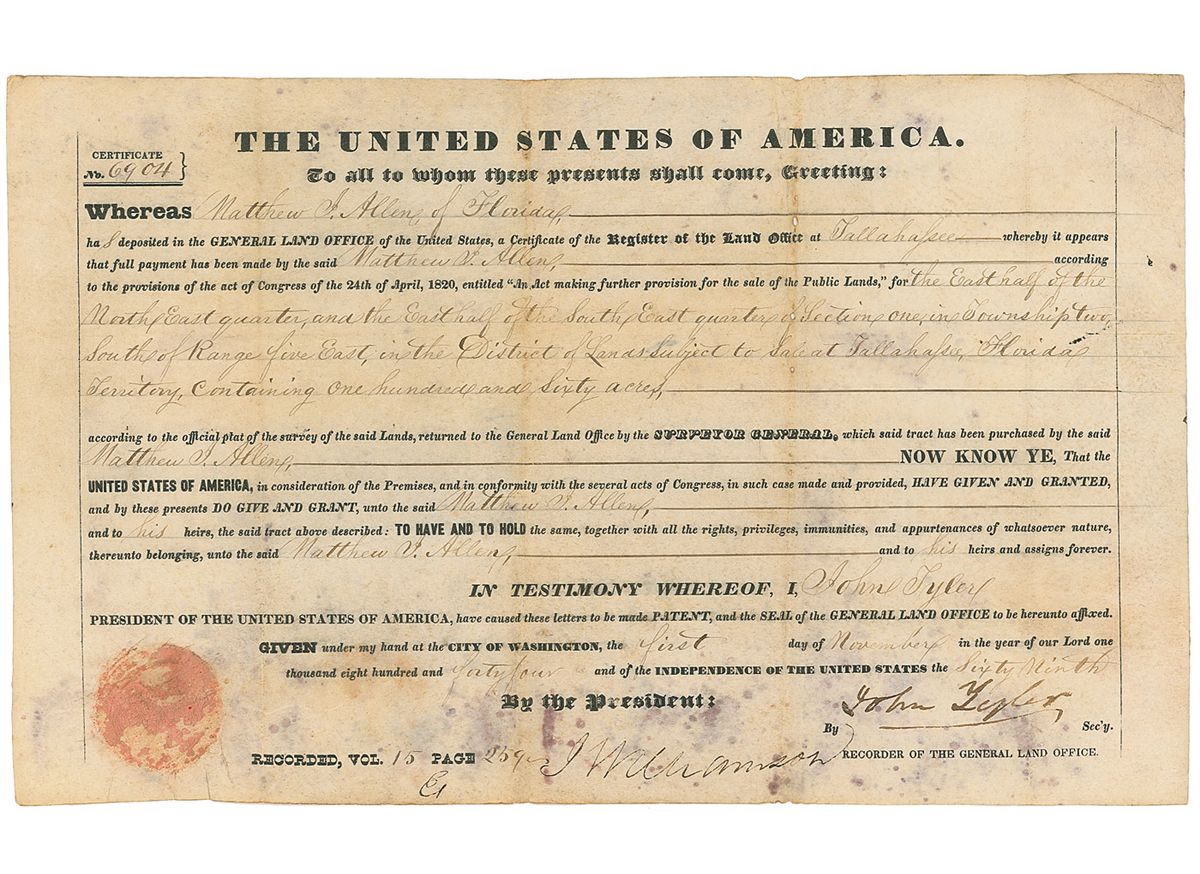 THE UNITED STATES OF AMERICA.
CERTIFICATE
No. 6904
To all to whom these presents shall come, Greeting:
Whereas Matthew J. Allen, of Florida,
ha s deposited in the GENERAL LAND OFFICE of the United States, a Certificate of the Register of the Land Office at Tallahassee whereby it appears
that full payment has been made by the said Matthew J. Allen, according
to the provisions of the act of Congress of the 24th of April, 1820, entitled "An Act making further provision for the sale of the Public Lands," for the East half of the
North East quarter, and the East half of the South East quarter of Section one, in Township two,
South of Range five East, in the District of Lands subject to Sale at Tallahassee, Florida
Territory, Containing one hundred and sixty acres,
according to the official plat of the survey of the said Lands, returned to the General Land Office by the SURVEYOR GENERAL, which said tract has been purchased by the said
Matthew J. Allen, NOW KNOW YE, That the
UNITED STATES OF AMERICA, in consideration of the Premises, and in conformity with the several acts of Congress, in such case made and provided, HAVE GIVEN AND GRANTED,
and by these presents DO GIVE AND GRANT, unto the said Matthew J. Allen,
and to his heirs, the said tract above described: TO HAVE AND TO HOLD the same, together with all the rights, privileges, immunities, and appurtenances of whatsoever nature,
thereunto belonging, unto the said Matthew J. Allen, and to his heirs and assigns forever.
IN TESTIMONY WHEREOF, I, John Tyler
PRESIDENT OF THE UNITED STATES OF AMERICA, have caused these letters to be made PATENT, and the SEAL of the GENERAL LAND OFFICE to be hereunto affixed.
GIVEN under my hand at the CITY OF WASHINGTON, the first day of November in the year of our Lord one
thousand eight hundred and forty four and of the INDEPENDENCE OF THE UNITED STATES the Sixty Ninth
By the President: John Tyler
By Sec'y.
RECORDED, VOL. 15 PAGE 259 J Williamson RECORDER OF THE GENERAL LAND OFFICE.